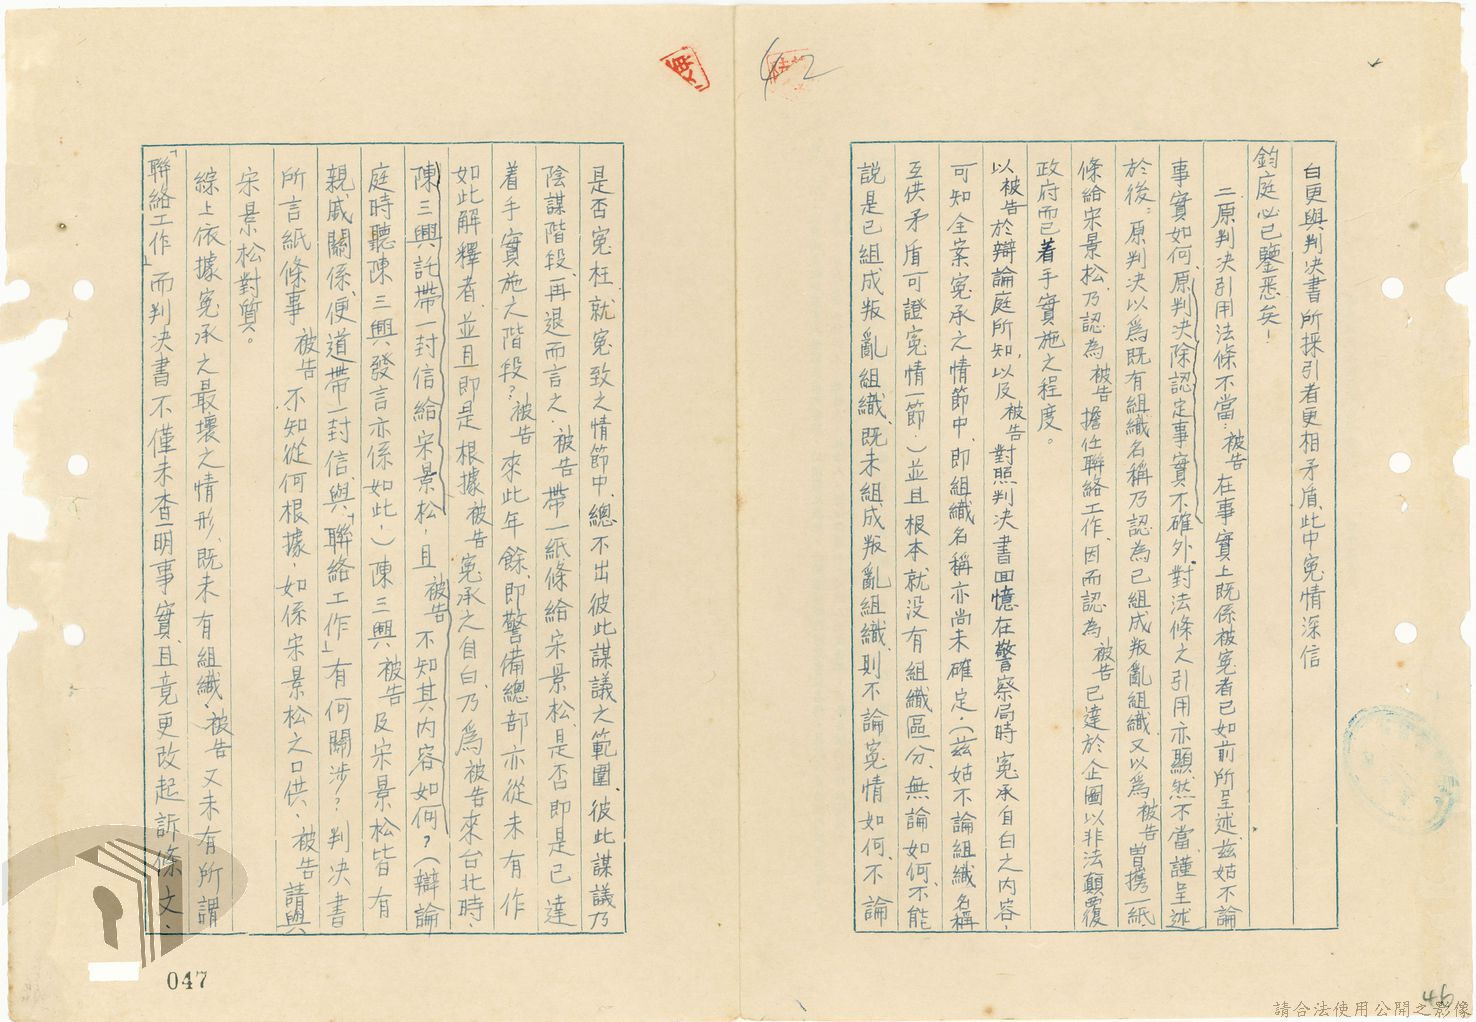 白更與判决書所採引者更相矛盾,此中寃情深信
鈞庭必已鑒悉矣!
二原判决引用法條不當:被告在事實上既係被寃者已如前所呈述,茲姑不論
事實如何,原判决除認定事實不確外,對法條之引用亦顯然不當,謹呈述
於後:原判决以為既有組織名稱乃認為已組成叛亂組織又以為被告曾携一紙
條給宋景松,乃認為被告擔任聯絡工作,因而認為被告已達於企圖以非法顛覆
政府而已着手實施之程度。
以被告於辯論庭所知,以及被告對照判决書回憶在警察局時寃承自白之内容,
可知全案寃承之情節中,即組織名稱亦尚未確定,(茲姑不論組織名稱
互供矛盾可證寃情一節,)並且根本就没有組織區分,無論如何,不能
說是已組成叛亂組織,既未組成叛亂組織,則不論寃情如何,不論
是否寃枉,就寃致之情節中,總不出彼此謀議之範圍,彼此謀議乃
陰謀階段,再退而言之,被告帶一紙條給宋景松,是否即是已達
着手實施之階段?被告來此年餘,即警備總部亦從未有作
如此解釋者,並且即是根據被告寃承之自白,乃為被告來台北時,
陳三興託帶一封信給宋景松,且被告不知其内容如何?(辯論
庭時聽陳三興發言亦係如此,)陳三興被告及宋景松皆有
親戚關係,便道帶一封信,與「聯絡工作」有何關涉?判决書
所言紙條事被告不知從何根據,如係宋景松之口供,被告請與
宋景松對質。
綜上依據寃承之最壞之情形,既未有組織,被告又未有所謂
「聯絡工作」而判决書不僅未查明事實,且竟更改起訴條文,
42
047
46
請合法使用公開之影像